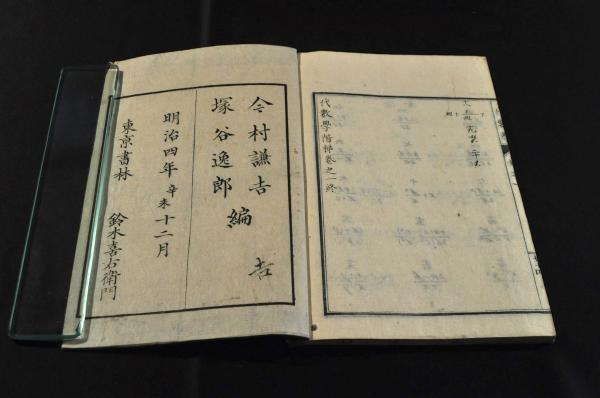 代數學階梯卷之一終
今村謙吉
塚谷逸郎
編
吉
明治四年辛未十二月
東京書林
鈴木喜右衛門